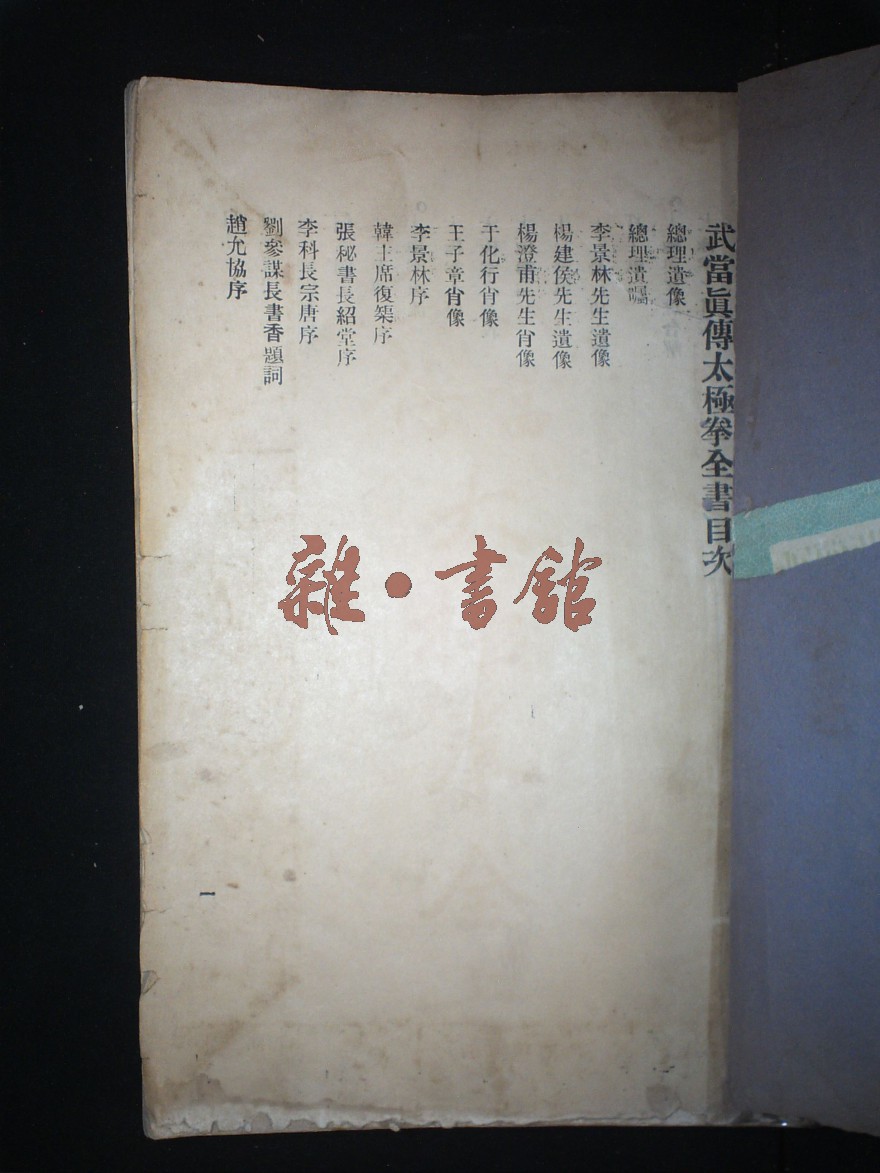 武當眞傳太極拳全書目次
總理遺像
總理遺囑
李景林先生遺像
楊建侯先生遺像
楊澄甫先生肖像
于化行肖像
王子章肖像
李景林序
韓主席復榘序
張秘書長紹堂序
李科長宗唐序
劉參謀長書香題詞
趙允協序
一
雜·書館